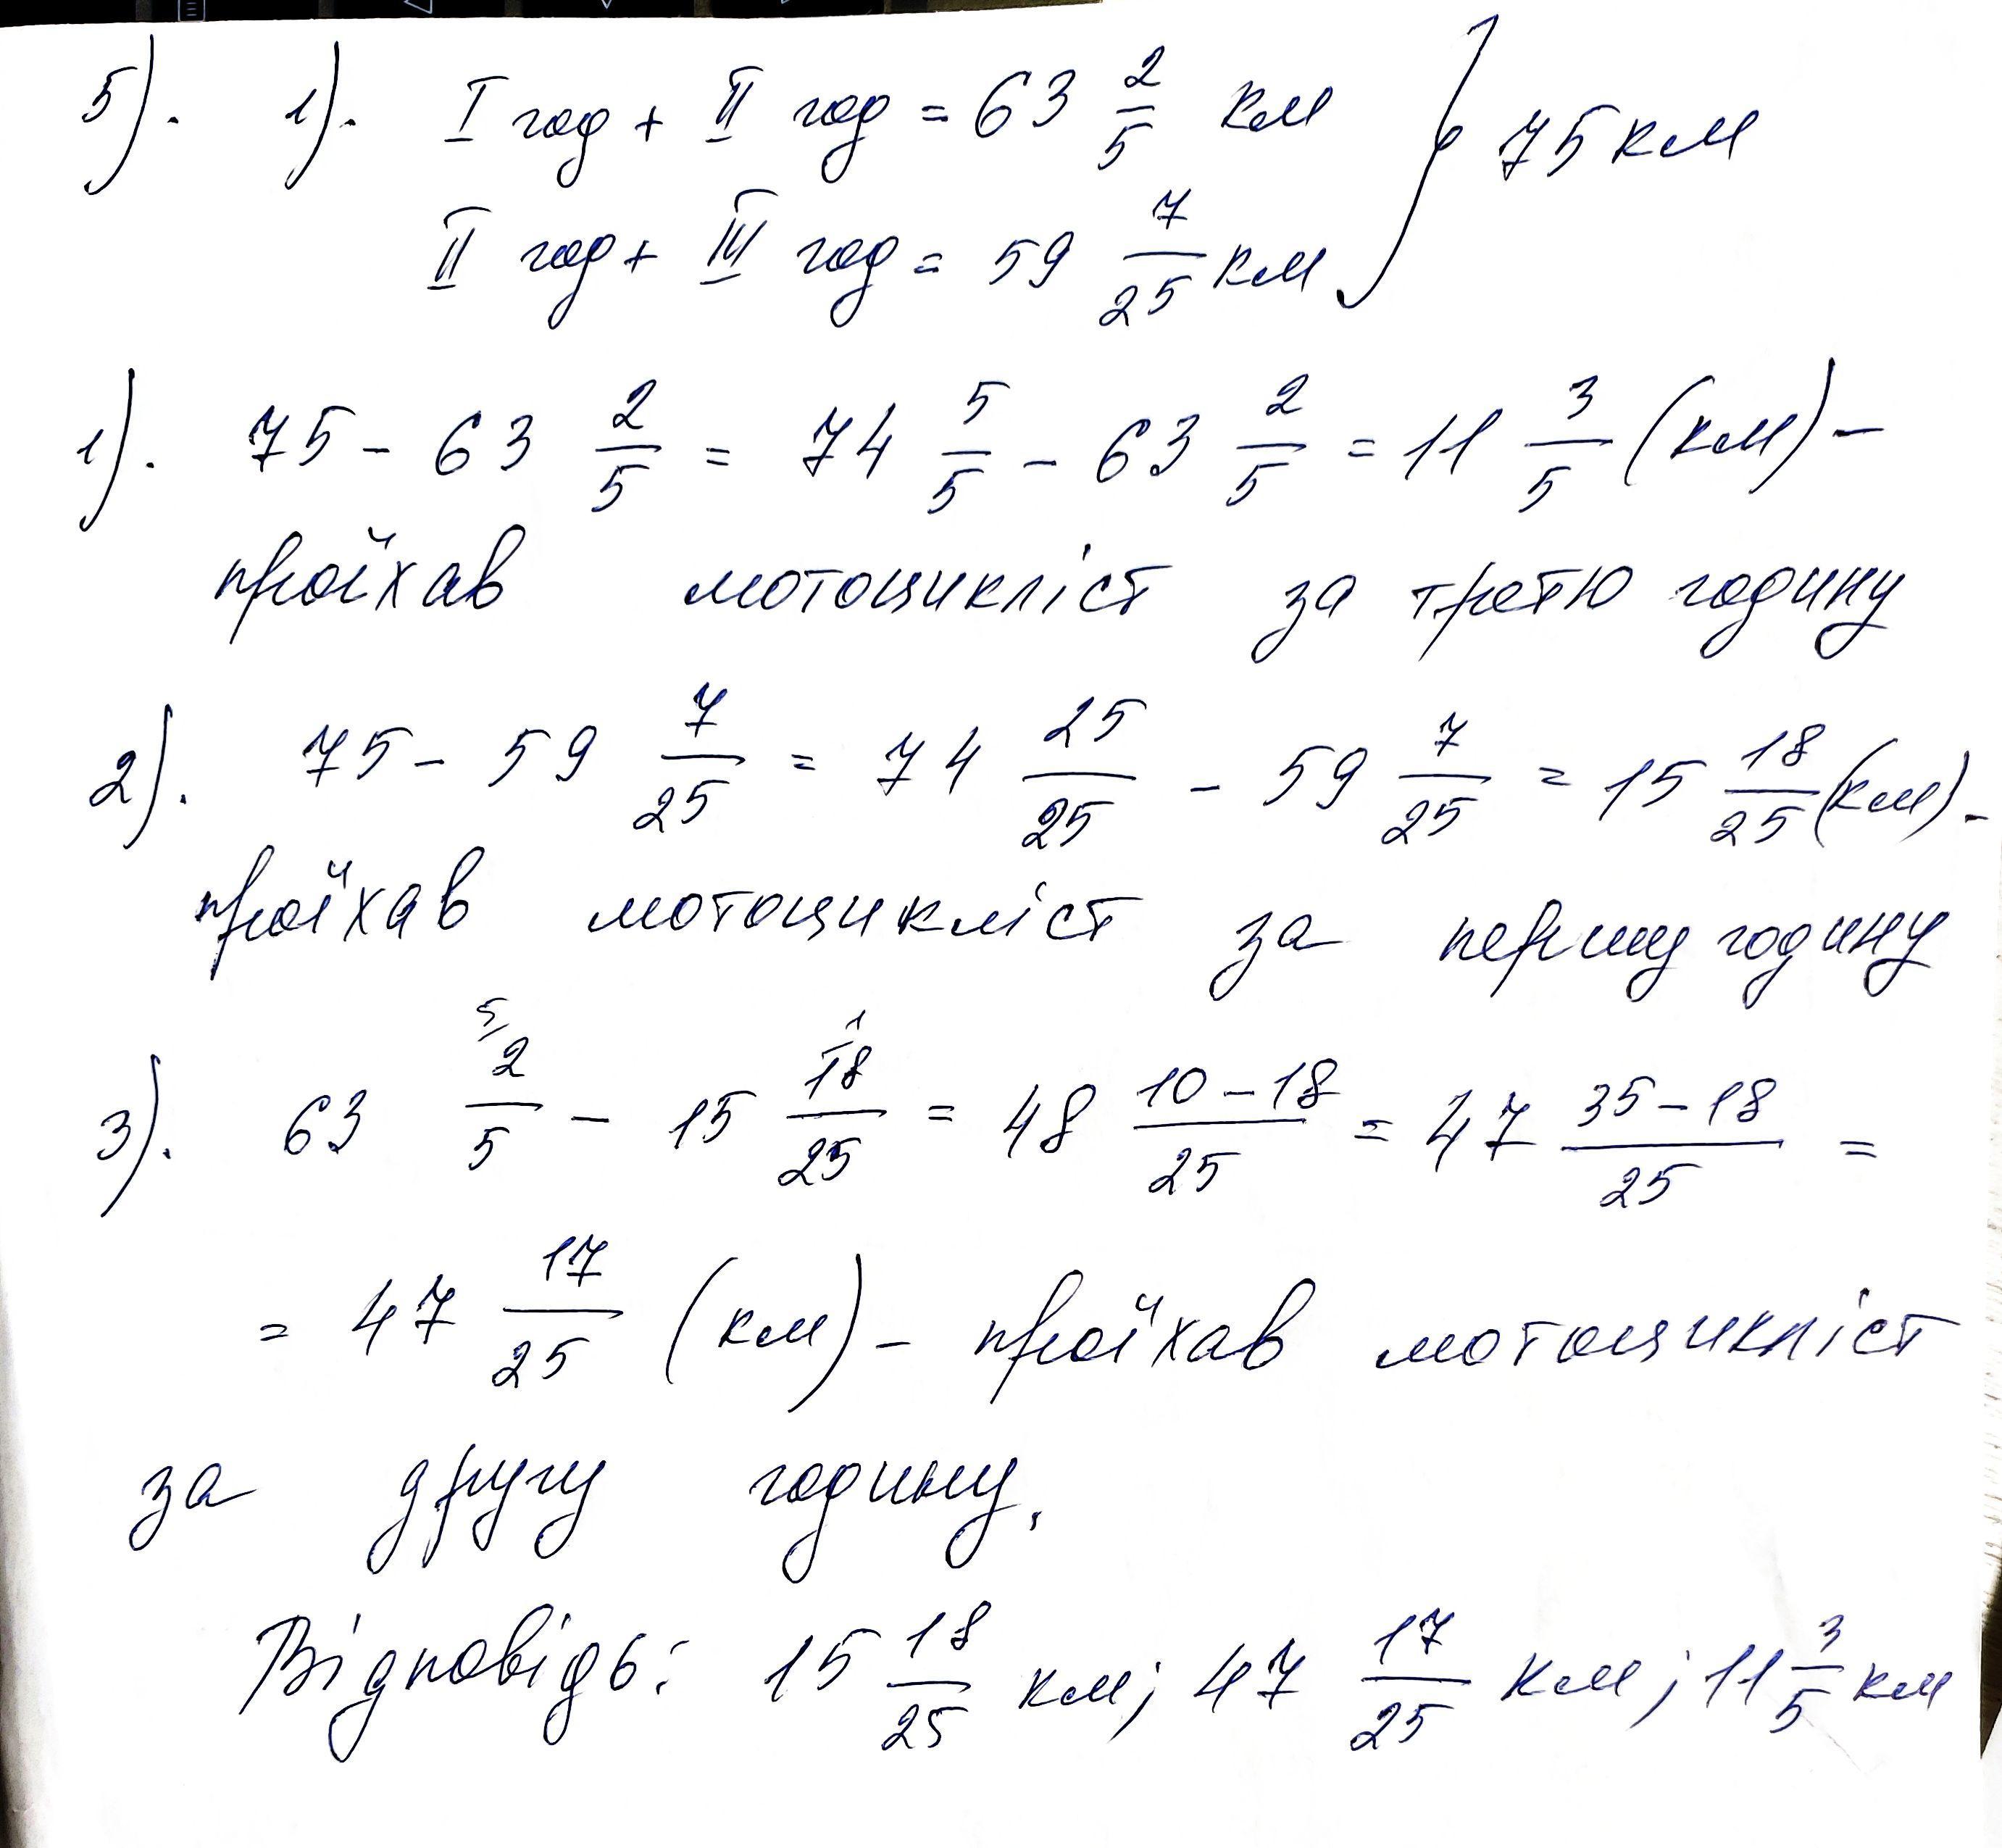 5). 1). I год + II год = 63 2/5 км } 75 км
II год + III год = 59 7/25 км
1). 75 - 63 2/5 = 74 5/5 - 63 2/5 = 11 3/5 (км) -
проїхав мотоцикліст за третю годину
2). 75 - 59 7/25 = 74 25/25 - 59 7/25 = 15 18/25 (км) -
проїхав мотоцикліст за першу годину
3). 63 2/5 (5 - 15 18/25 (1 = 48 10-18/25 = 47 35-18/25 =
= 47 17/25 (км) - проїхав мотоцикліст
за другу годину.
Відповідь: 15 18/25 км; 47 17/25 км; 11 3/5 км